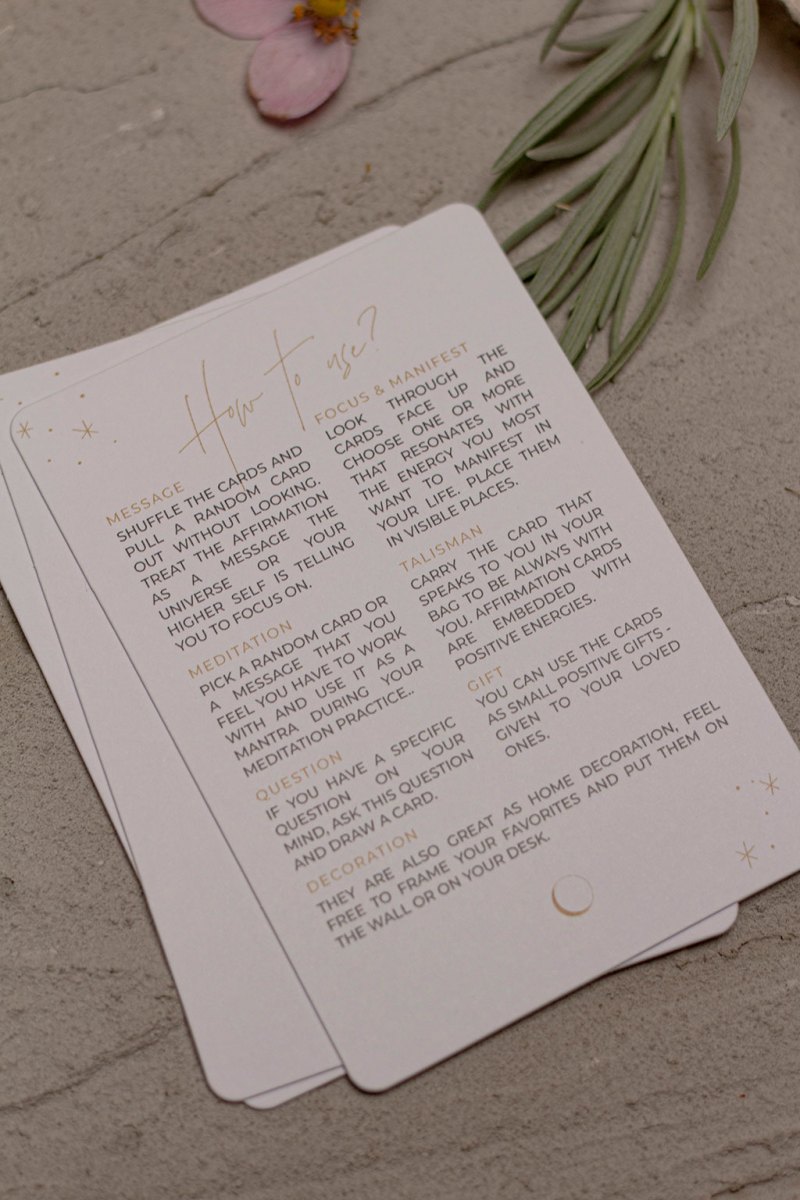 How to use?
MESSAGE
SHUFFLE THE CARDS AND
PULL A RANDOM CARD
OUT WITHOUT LOOKING.
TREAT THE AFFIRMATION
AS A MESSAGE THE
UNIVERSE OR YOUR
HIGHER SELF IS TELLING
YOU TO FOCUS ON.
MEDITATION
PICK A RANDOM CARD OR
A MESSAGE THAT YOU
FEEL YOU HAVE TO WORK
WITH AND USE IT AS A
MANTRA DURING YOUR
MEDITATION PRACTICE..
QUESTION
IF YOU HAVE A SPECIFIC
QUESTION ON YOUR
MIND, ASK THIS QUESTION
AND DRAW A CARD.
FOCUS & MANIFEST
LOOK THROUGH THE
CARDS FACE UP AND
CHOOSE ONE OR MORE
THAT RESONATES WITH
THE ENERGY YOU MOST
WANT TO MANIFEST IN
YOUR LIFE. PLACE THEM
IN VISIBLE PLACES.
TALISMAN
CARRY THE CARD THAT
SPEAKS TO YOU IN YOUR
BAG TO BE ALWAYS WITH
YOU. AFFIRMATION CARDS
ARE EMBEDDED WITH
POSITIVE ENERGIES.
GIFT
YOU CAN USE THE CARDS
AS SMALL POSITIVE GIFTS -
GIVEN TO YOUR LOVED
ONES.
DECORATION
THEY ARE ALSO GREAT AS HOME DECORATION, FEEL
FREE TO FRAME YOUR FAVORITES AND PUT THEM ON
THE WALL OR ON YOUR DESK.